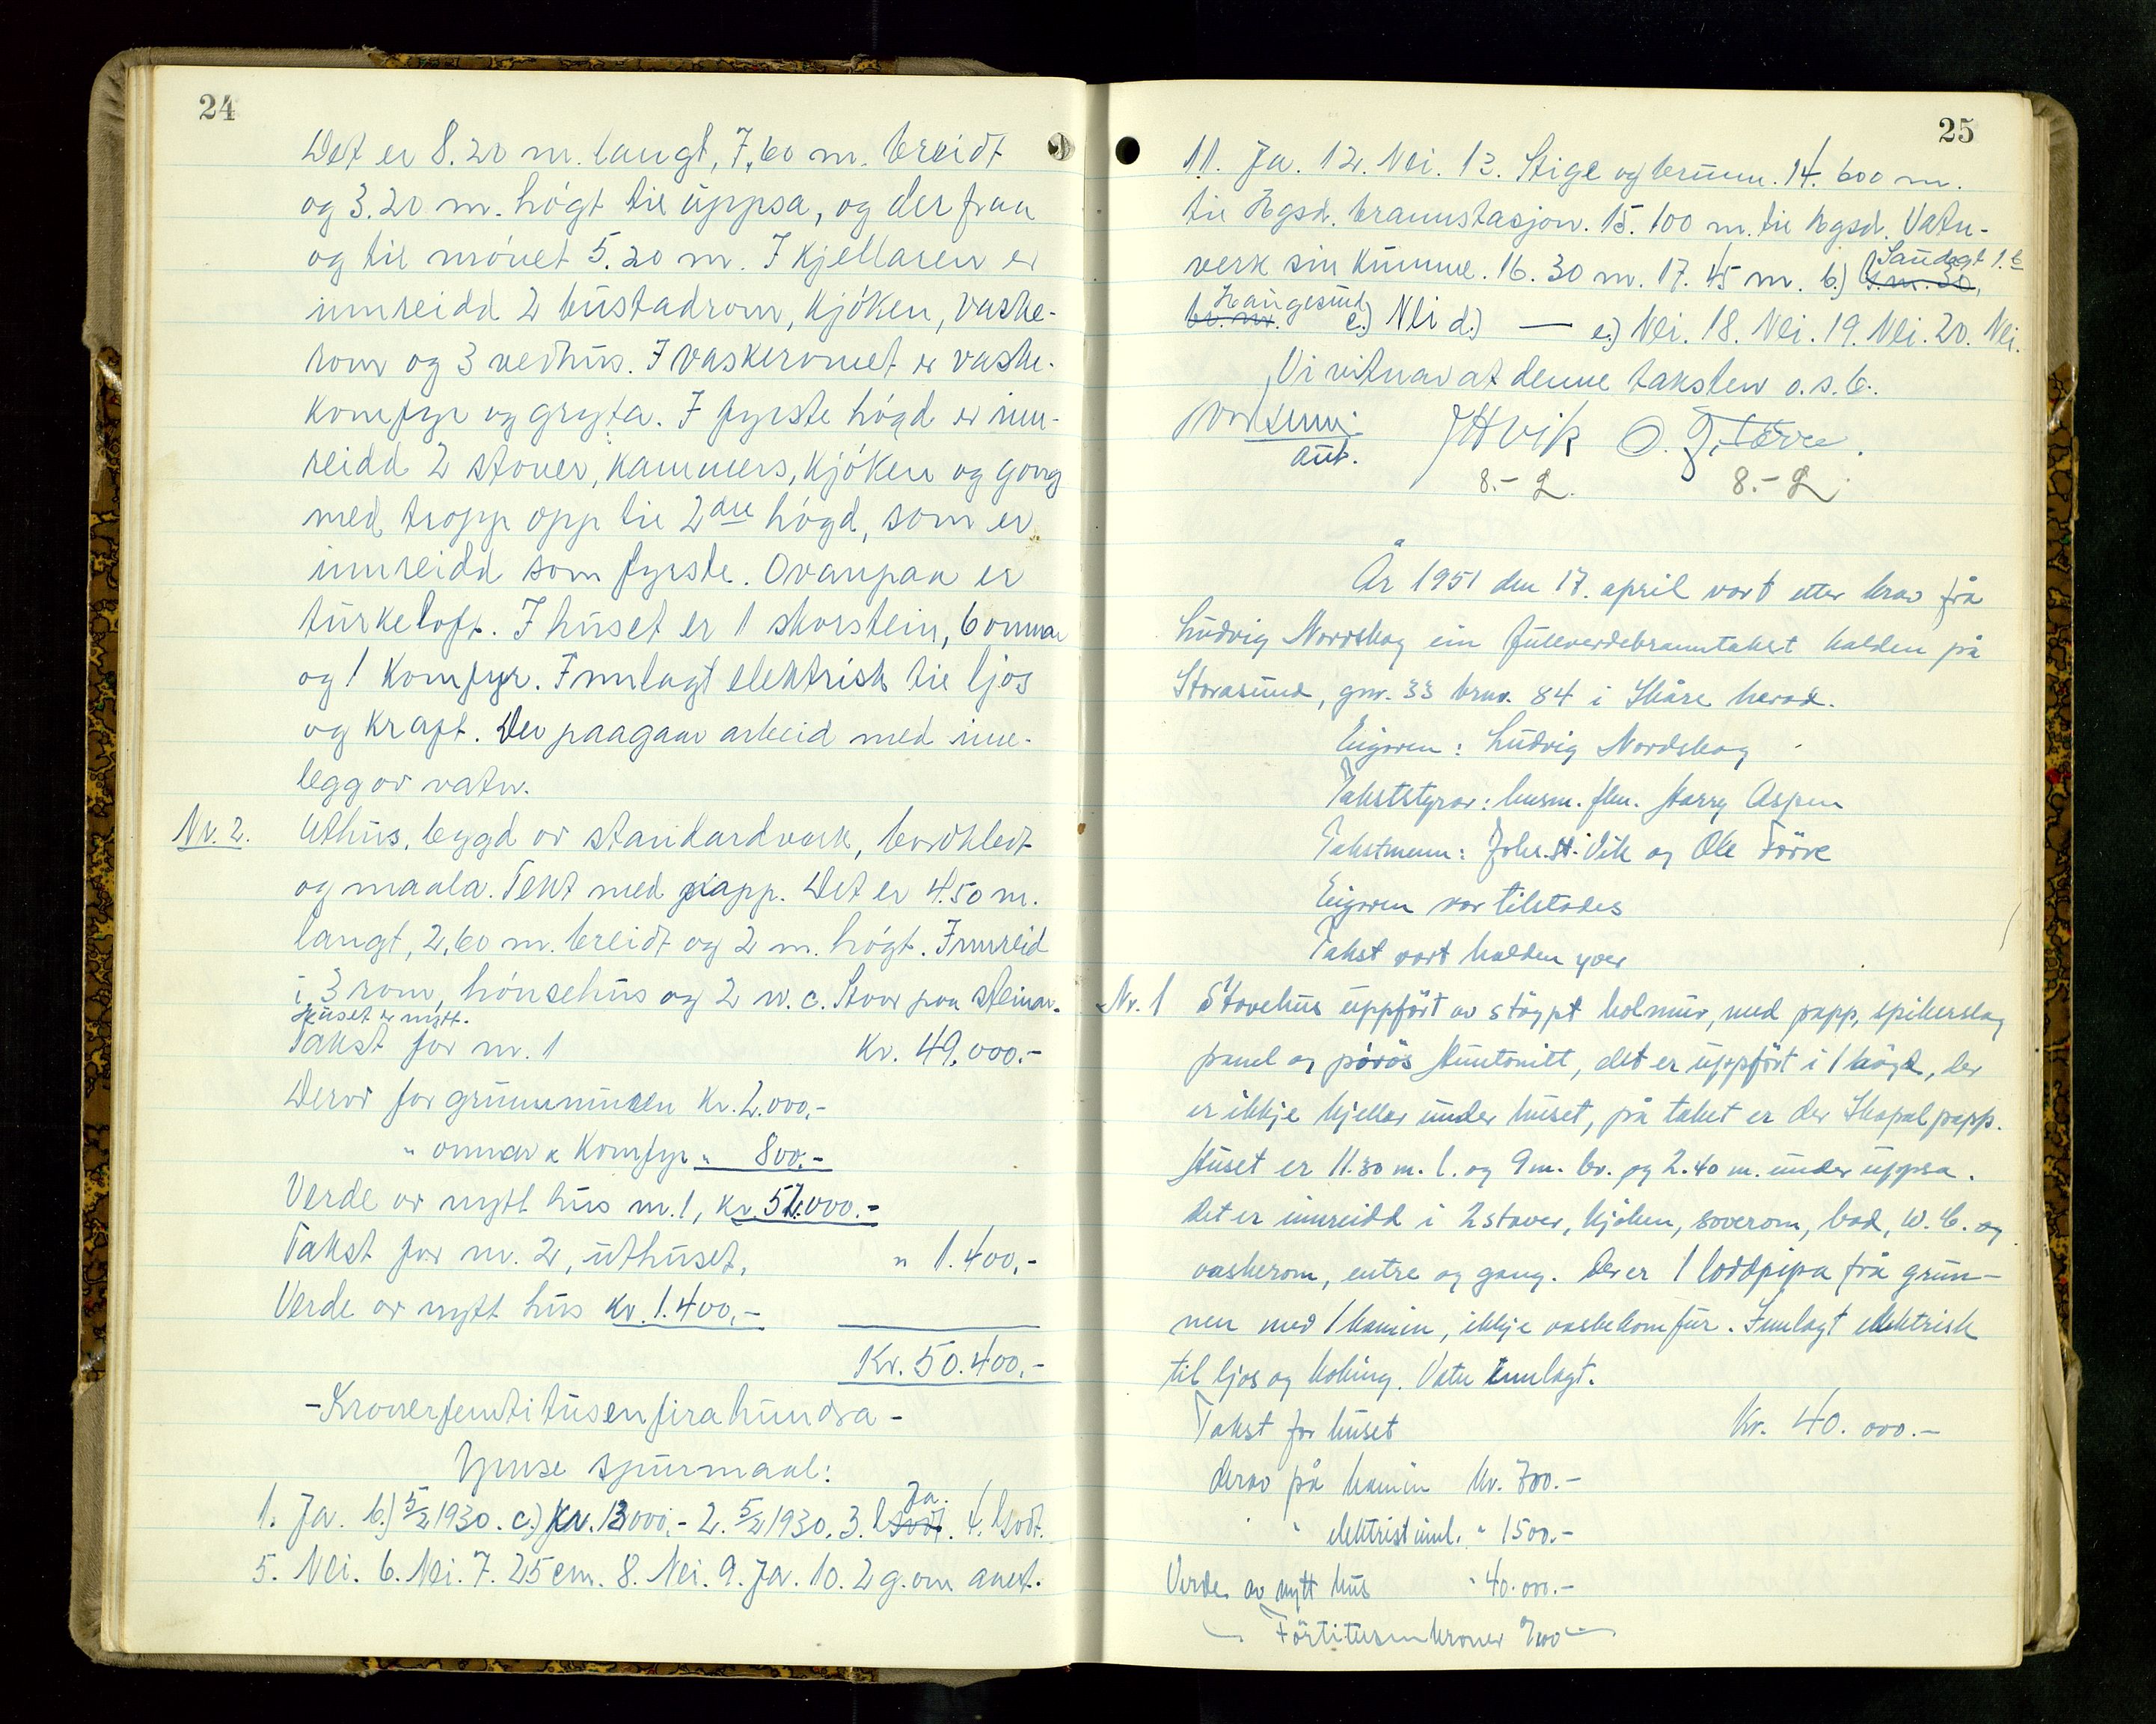 24
Det er 8.20 m. langt, 7,60 m. breidt
og 3.20 m. högt til uppsa, og der fraa
og til mönet 5.20 m. I kjellaren er
innreidd 2 bustadrom, kjöken, vaske-
rom og 3 vedhus. I vaskeromet er vaske-
komfyr og gryta. I fyrste högd er inn-
reidd 2 stover, kammers, kjöken og gong
med tropp opp til 2dre högd, som er
innreidd som fyrste. Ovanpaa er
turkeloft. I huset er 1 skorstein, 6 omnar
og 1 komfyr. Innlagt elektrisk til ljos
og kraft. Der paagaar arbeid med inn-
legg av vatn.
Nr. 2. Uthus, bygd av standardverk, bordkledt
og maala. Tekt med papp. Det er 4.50 m.
langt, 2,60 m. breidt og 2 m. högt. Innreid
i 3 rom, hönsehus og 2 w.c. Stour paa steinar.
Huset er nytt.
Takst for nr. 1 Kr. 49.000.-
Derav for grunnmuren Kr. 2.000,-
" omnar & komfyr " 800.-
Verde av nytt hus nr. 1, kr. 52.000.-
Takst for nr. 2, uthuset, " 1.400,-
Verde av nytt hus kr. 1.400,-
Kr. 50.400.-
-Kronerfemtitusenfirahundra-
Ymse spurmaal:
1. Ja. b.) 5/2 1930. c.) Kr. 13000.- 2. 5/2 1930. 3. Godt. Ja. 4. Godt.
5. Nei. 6. Nei. 7. 25 cm. 8. Nei. 9. Ja. 10. 2 g. om aaret.
25
11. Ja. 12. Nei. 13. Stige og brunn. 14. 600 m.
til Hgsd. brannstasjon. 15. 100 m. til Hgsd. Vatn-
verk sin kumme. 16. 30 m. 17. 45 m. b.) s.m. 30, Saudagt 1.b
br. m. Haugesund c.) Nei d.) — e.) Nei. 18. Nei. 19. Nei. 20. Nei.
Vi vitnar at denne taksten o.s.b.
aut. JHVik O. Förre.
8.- 8.-
År 1951 den 17. april vart etter krav frå
Ludvig Nordskog ein fullverdebranntakst halden på
Storasund, gnr. 33 brnr. 84 i Skåre herad.
Eigaren: Ludvig Nordskog
Takststyrar: lensm. flm. Harry Aspen
Takstmenn: Johs. H. Vik og Ole Förre
Eigaren var tilstades
Takst vart halden yver
Nr. 1 Stovehus uppfört av stöypt holmur, med papp, spikerslag
panel og porös Huntonitt, det er uppfört i 1 högd, der
er ikkje kjellar under huset, på taket er der Skapal papp.
Huset er 11.30 m. l. og 9 m. br. og 2.40 m. under uppsa.
Det er innreidd i 2 stover, kjöken, soverom, bad, W.C. og
vaskerom, entre og gang. Der er 1 loddpipa frå grun-
nen med 1 kamin, ikkje vaskekomfur. Innlagt elektrisk
til ljos og koking. Vatn innlagt.
Takst for huset Kr. 40.000.-
derav på kamin kr. 700.-
" elektrist innl. " 1500.-
Verde av nytt hus " 40.000.-
— Förtitusenkroner 7oo —